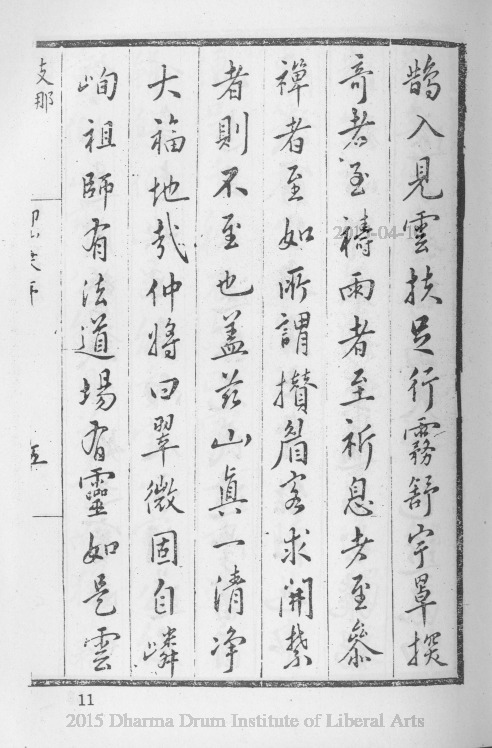 鵲入見雲扶足行霧舒宇單探
奇者至禱雨者至祈息者至叅
禪者至如所謂攅眉客求開禁
者則不至也盖茲山真一清净
大福地哉仲將曰翠微固自嶙
峋祖師有法道場有靈如是雲
支那
五
11
2015 Dharma Drum Institute of Liberal Arts